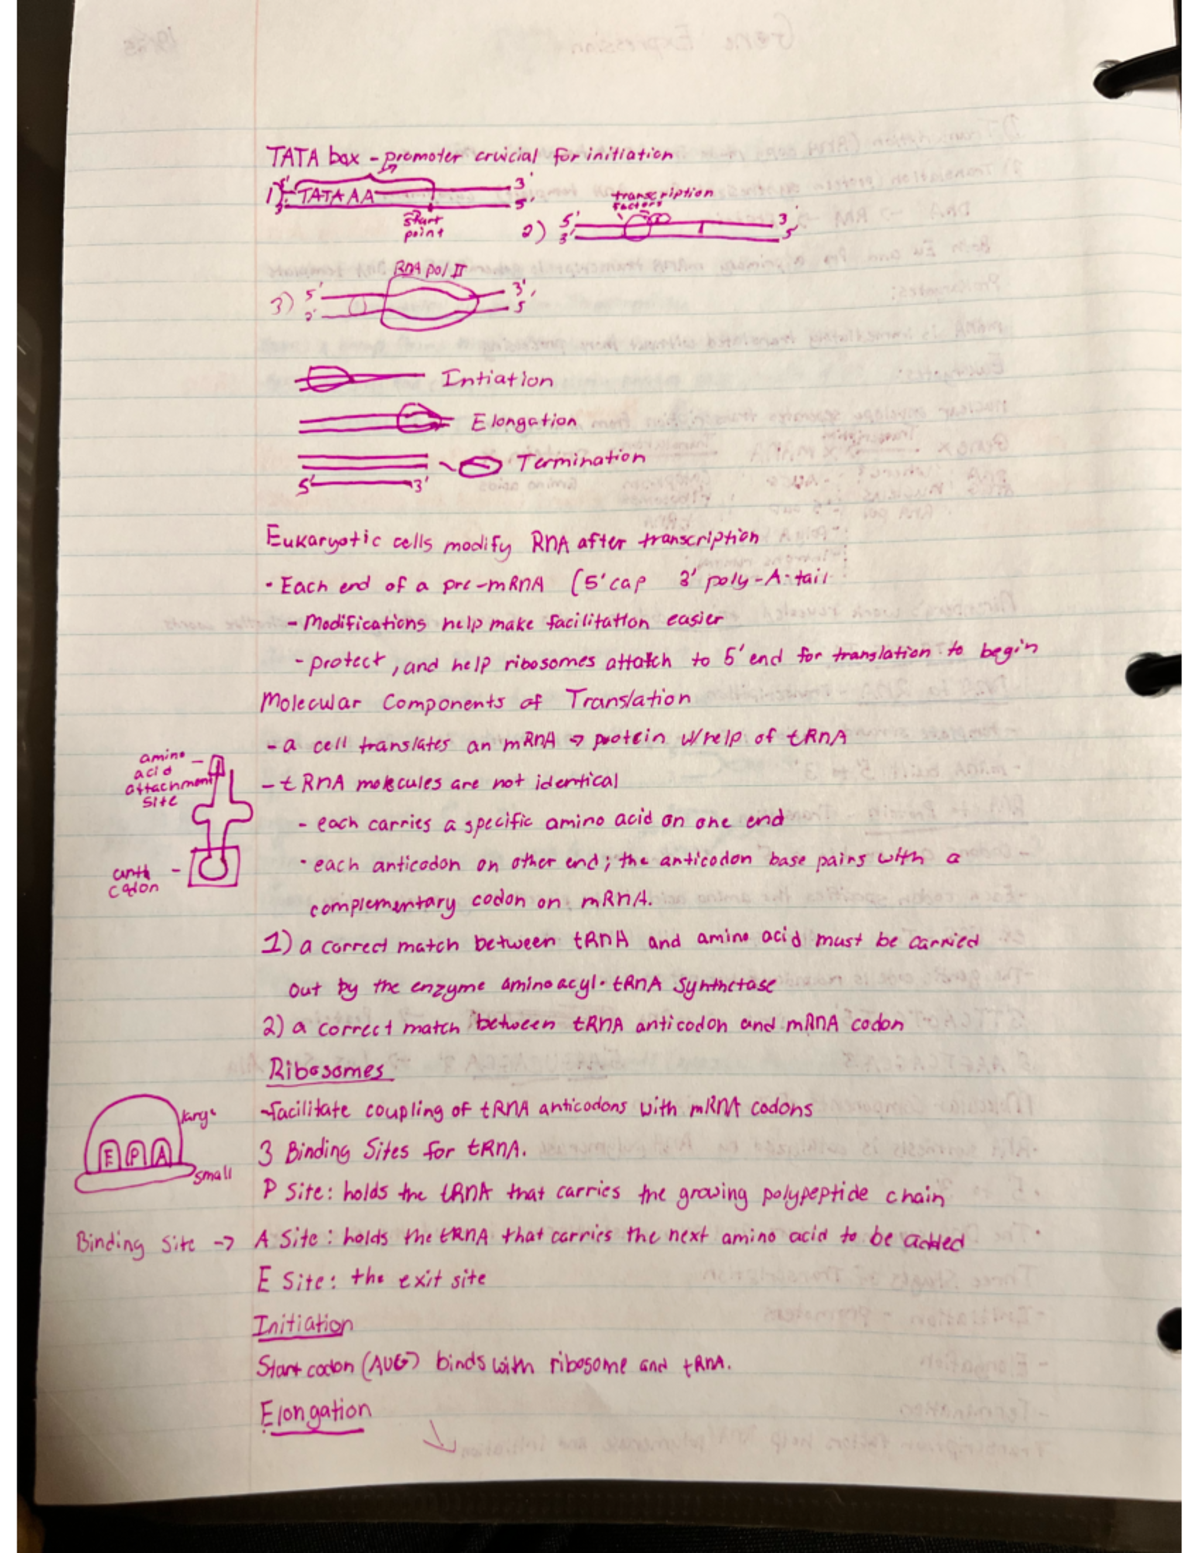 TATA box - promoter cruicial for initiation
1) 5' TATAAA 3'
3' 5'
start
point
transcription
factors
2) 5' 3'
3' 5'
RNA pol II
3) 5' 3'
3' 5'
Intiation
Elongation
Termination
5' 3'
Eukaryotic cells modify RNA after transcription
· Each end of a pre-mRNA (5' cap 3' poly-A-tail
- Modifications help make facilitation easier
- protect, and help ribosomes attatch to 5' end for translation to begin
Molecular Components of Translation
- a cell translates an mRNA → protein w/help of tRNA
amino
acid
attachment
site
- tRNA molecules are not identical
- each carries a specific amino acid on one end
· each anticodon on other end; the anticodon base pairs with a
complementary codon on mRNA.
anti
codon
1) a correct match between tRNA and amino acid must be carried
out by the enzyme aminoacyl-tRNA synthetase
2) a correct match between tRNA anticodon and mRNA codon
Ribosomes
- facilitate coupling of tRNA anticodons with mRNA codons
large
E P A
small
3 Binding Sites for tRNA.
P Site: holds the tRNA that carries the growing polypeptide chain
Binding Site → A Site: holds the tRNA that carries the next amino acid to be added
E Site: the exit site
Initiation
Start codon (AUG) binds with ribosome and tRNA.
Elongation